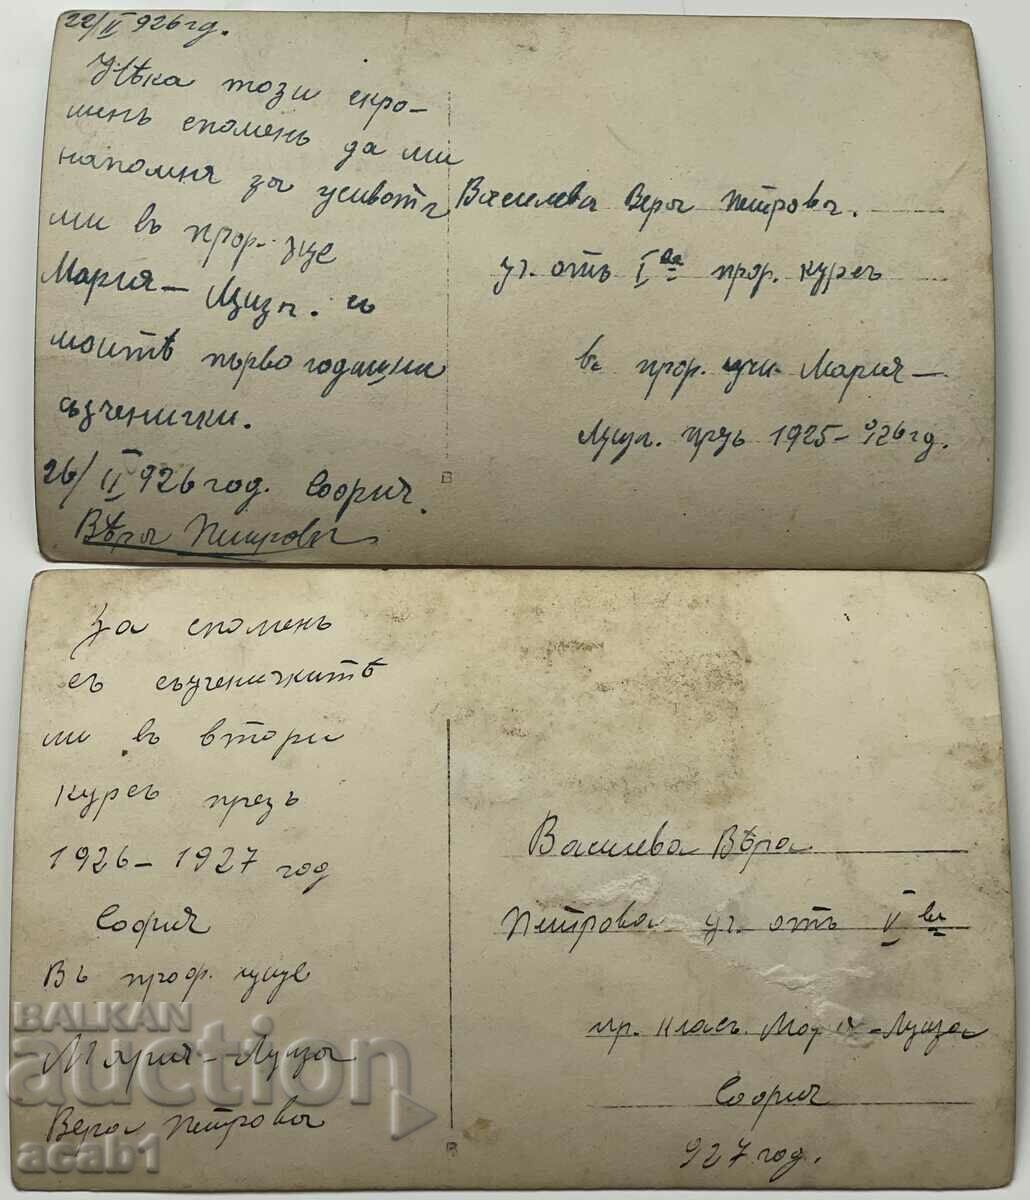 22/II 926 год.
Нѣка този скро-
менъ споменъ да ми
напомня за живота
ми въ проф. у-ще
Мария – Луиза. съ
моитѣ първогодишни
съученички.
26/II 926 год. София.
Вѣра Петрова
Василева Вера Петрова.
уч. отъ I ва проф. курсъ
въ проф. учи. Мария –
Луиза. презъ 1925 – 926 год.
В
За споменъ
съ съученичкитѣ
ми въ втори
курсъ презъ
1926 – 1927 год
София
Въ проф. у-ще
Мария – Луиза
Вера Петрова
Василева Вѣра
Петрова уч. отъ V ви
пр. класъ. Мария – Луиза
София
927 год.
В
BALKAN
auction
acab1